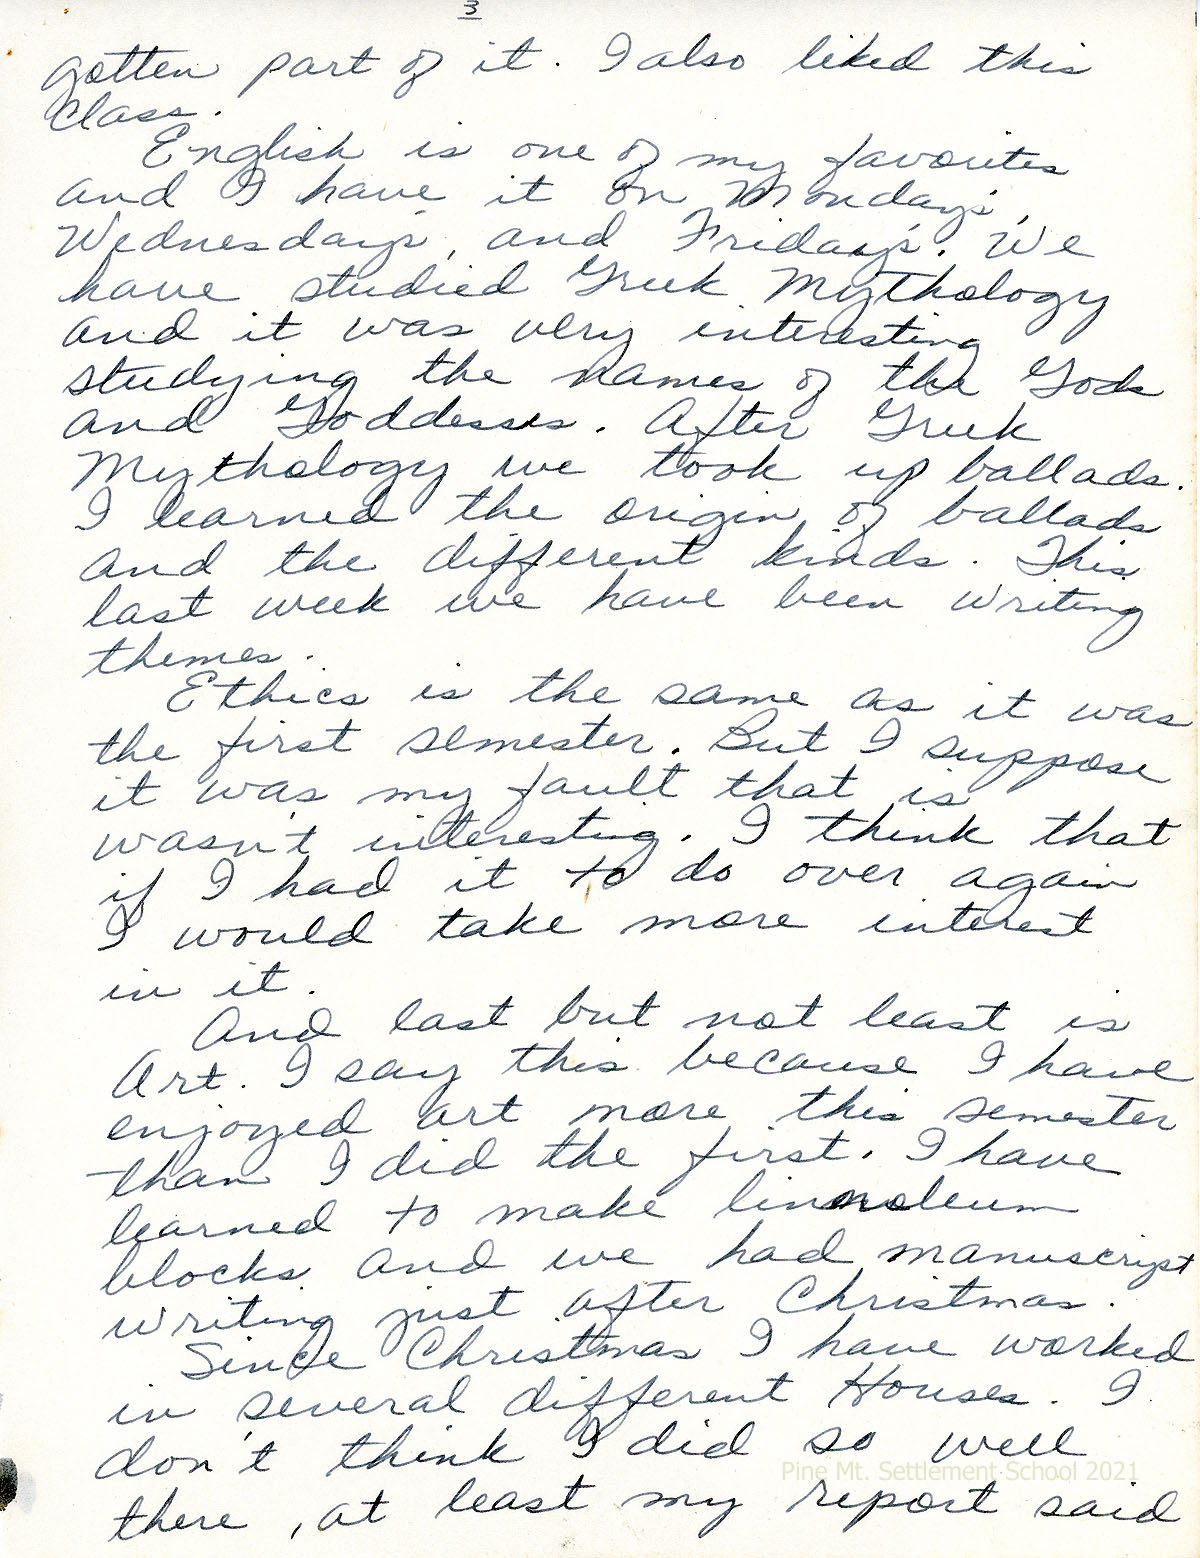 3
gotten part of it. I also liked this
class.
English is one of my favorites
and I have it on Monday's,
Wednesday's, and Friday's. We
have studied Greek Mythology
and it was very interesting
studying the names of the Gods
and Goddesses. After Greek
Mythology we took up ballads.
I learned the origin of ballads
and the different kinds. This
last week we have been writing
themes.
Ethics is the same as it was
the first semester. But I suppose
it was my fault that is
wasn't interesting. I think that
if I had it to do over again
I would take more interest
in it.
And last but not least is
Art. I say this because I have
enjoyed art more this semester
than I did the first. I have
learned to make linnoleum
blocks and we had manuscript
writing just after Christmas.
Since Christmas I have worked
in several different Houses. I
don't think I did so well
Pine Mt. Settlement School 2021
there, at least my report said